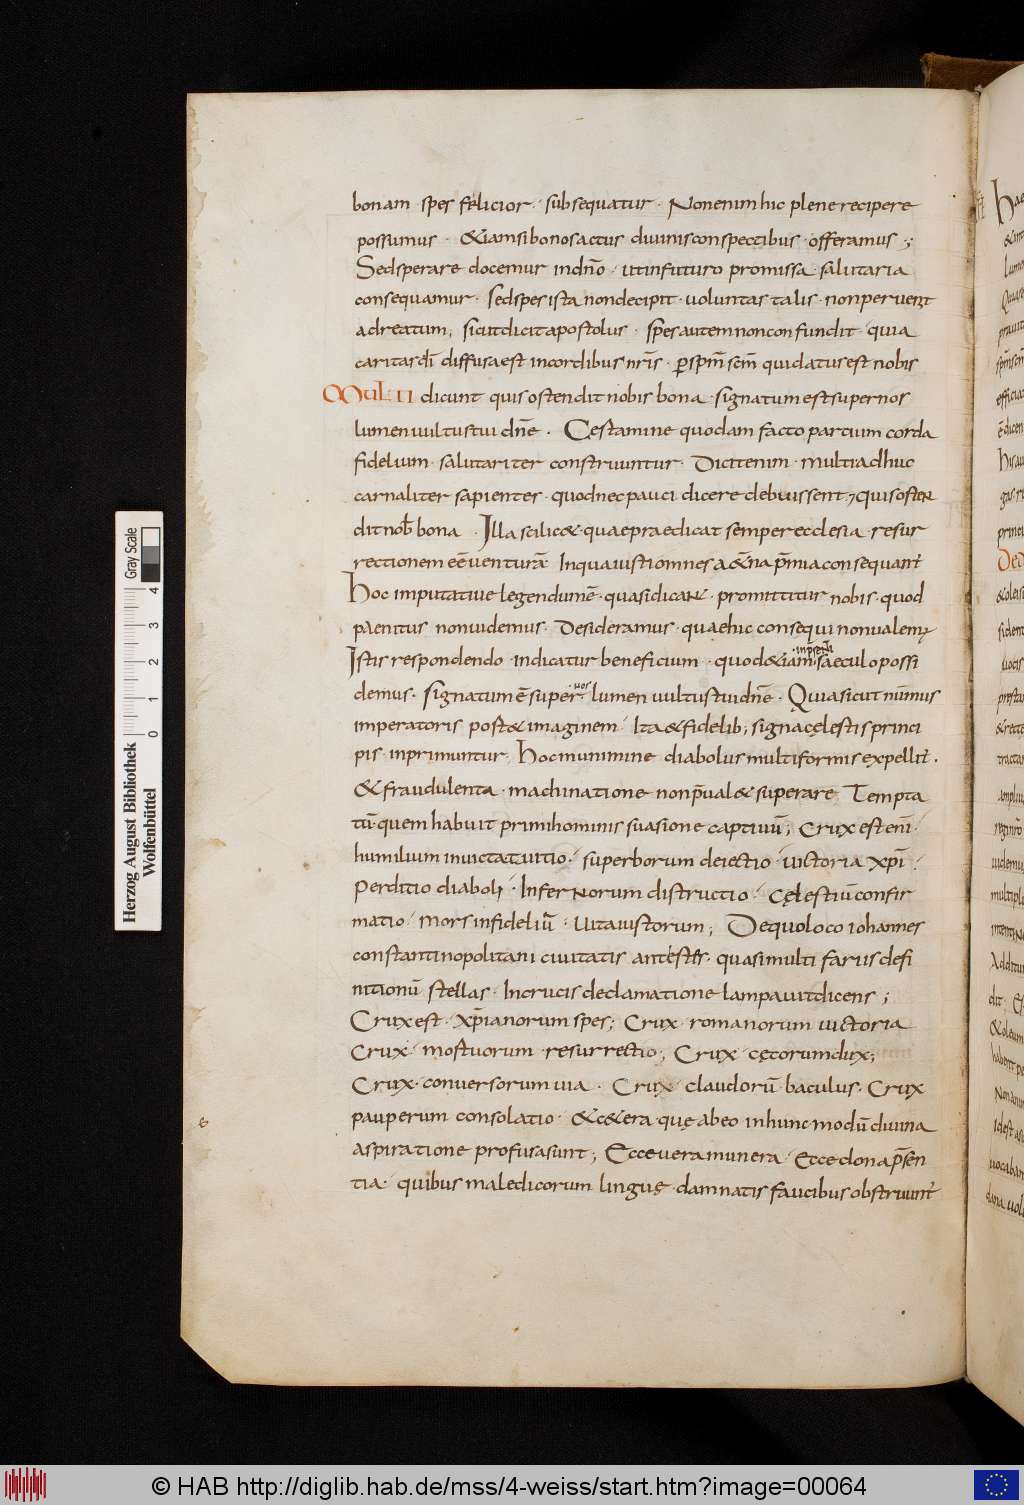 bonam · spes felicior · subsequatur · Non enim hic plene recipere
possumus · &iam si bonos actus diuinis conspectibus · offeramus ;
Sed sperare docemur in dn̄o · ut in futuro promissa salutaria
consequamur · sed spes ista non decipit · uoluntas talis · non peruenit
ad reatum; sicut dicit apostolus · spes autem non confundit · quia
caritas dī diffusa est in cordibus nr̄is · ꝑ spm̄ scm̄ qui datus est nobis
MULTI dicunt quis ostendit nobis bona · signatum est super nos
lumen uultus tui dn̄e · Testamine quodam facto partium corda
fidelium · salutariter construuntur · Dicit enim · multi adhuc
carnaliter sapientes · quod nec pauci dicere debuissent, quis osten
dit nob̄ bona · Illa scilic& · quae praedicat semper ecclesia · resur
rectionem eē uenturā In qua iusti omnes a&̄na p̄mia consequant̄
hoc imputatiue legendum ē · quasi dicant · promittitur nobis · quod
paenitus non uidemus · Desideramus · quae hic consequi non ualemꝰ
Istis respondendo · indicatur beneficium · quod &iam · in p̄senti saeculo possi
demus · signatum ē super · nos lumen uultus tui dn̄e · Quia sicut nūmus
imperatoris post & imaginem · Ita & fidelib; signa cęlestis princi
pis · inprimuntur · hoc munimine diabolus multiformis expellit̄ ·
& fraudulenta · machinatione non p̄ual& superare Tempta
tū quem habuit primi hominis suasione captiuū; Crux est enī ·
humilium inuicta tuitio · superborum deiectio · uictoria xp̄i ·
Perditio diaboli · Infernorum distructio · Cęlestiū confir
matio · mors infideliū · Uita iustorum; De quo loco iohannes
constantinopolitani ciuitatis antestes · quasi multifariis defi
nitionū stellas · In crucis declamatione lampauit dicens ;
Crux est · xp̄ianorum spes; Crux · romanorum uictoria
Crux · mortuorum · resurrectio; Crux · cęcorum dux;
Crux · conuersorum uia · Crux · claudorū · baculus · Crux
pauperum consolatio · & c&era quę ab eo in hunc modū diuina
aspiratione profusa sunt; Ecce uera munera · Ecce dona p̄sen
tia · quibus maledicorum linguę · damnatis faucibus obstruunt̄
Herzog August Bibliothek
Wolfenbüttel
Gray Scale
0 1 2 3 4
© HAB http://diglib.hab.de/mss/4-weiss/start.htm?image=00064